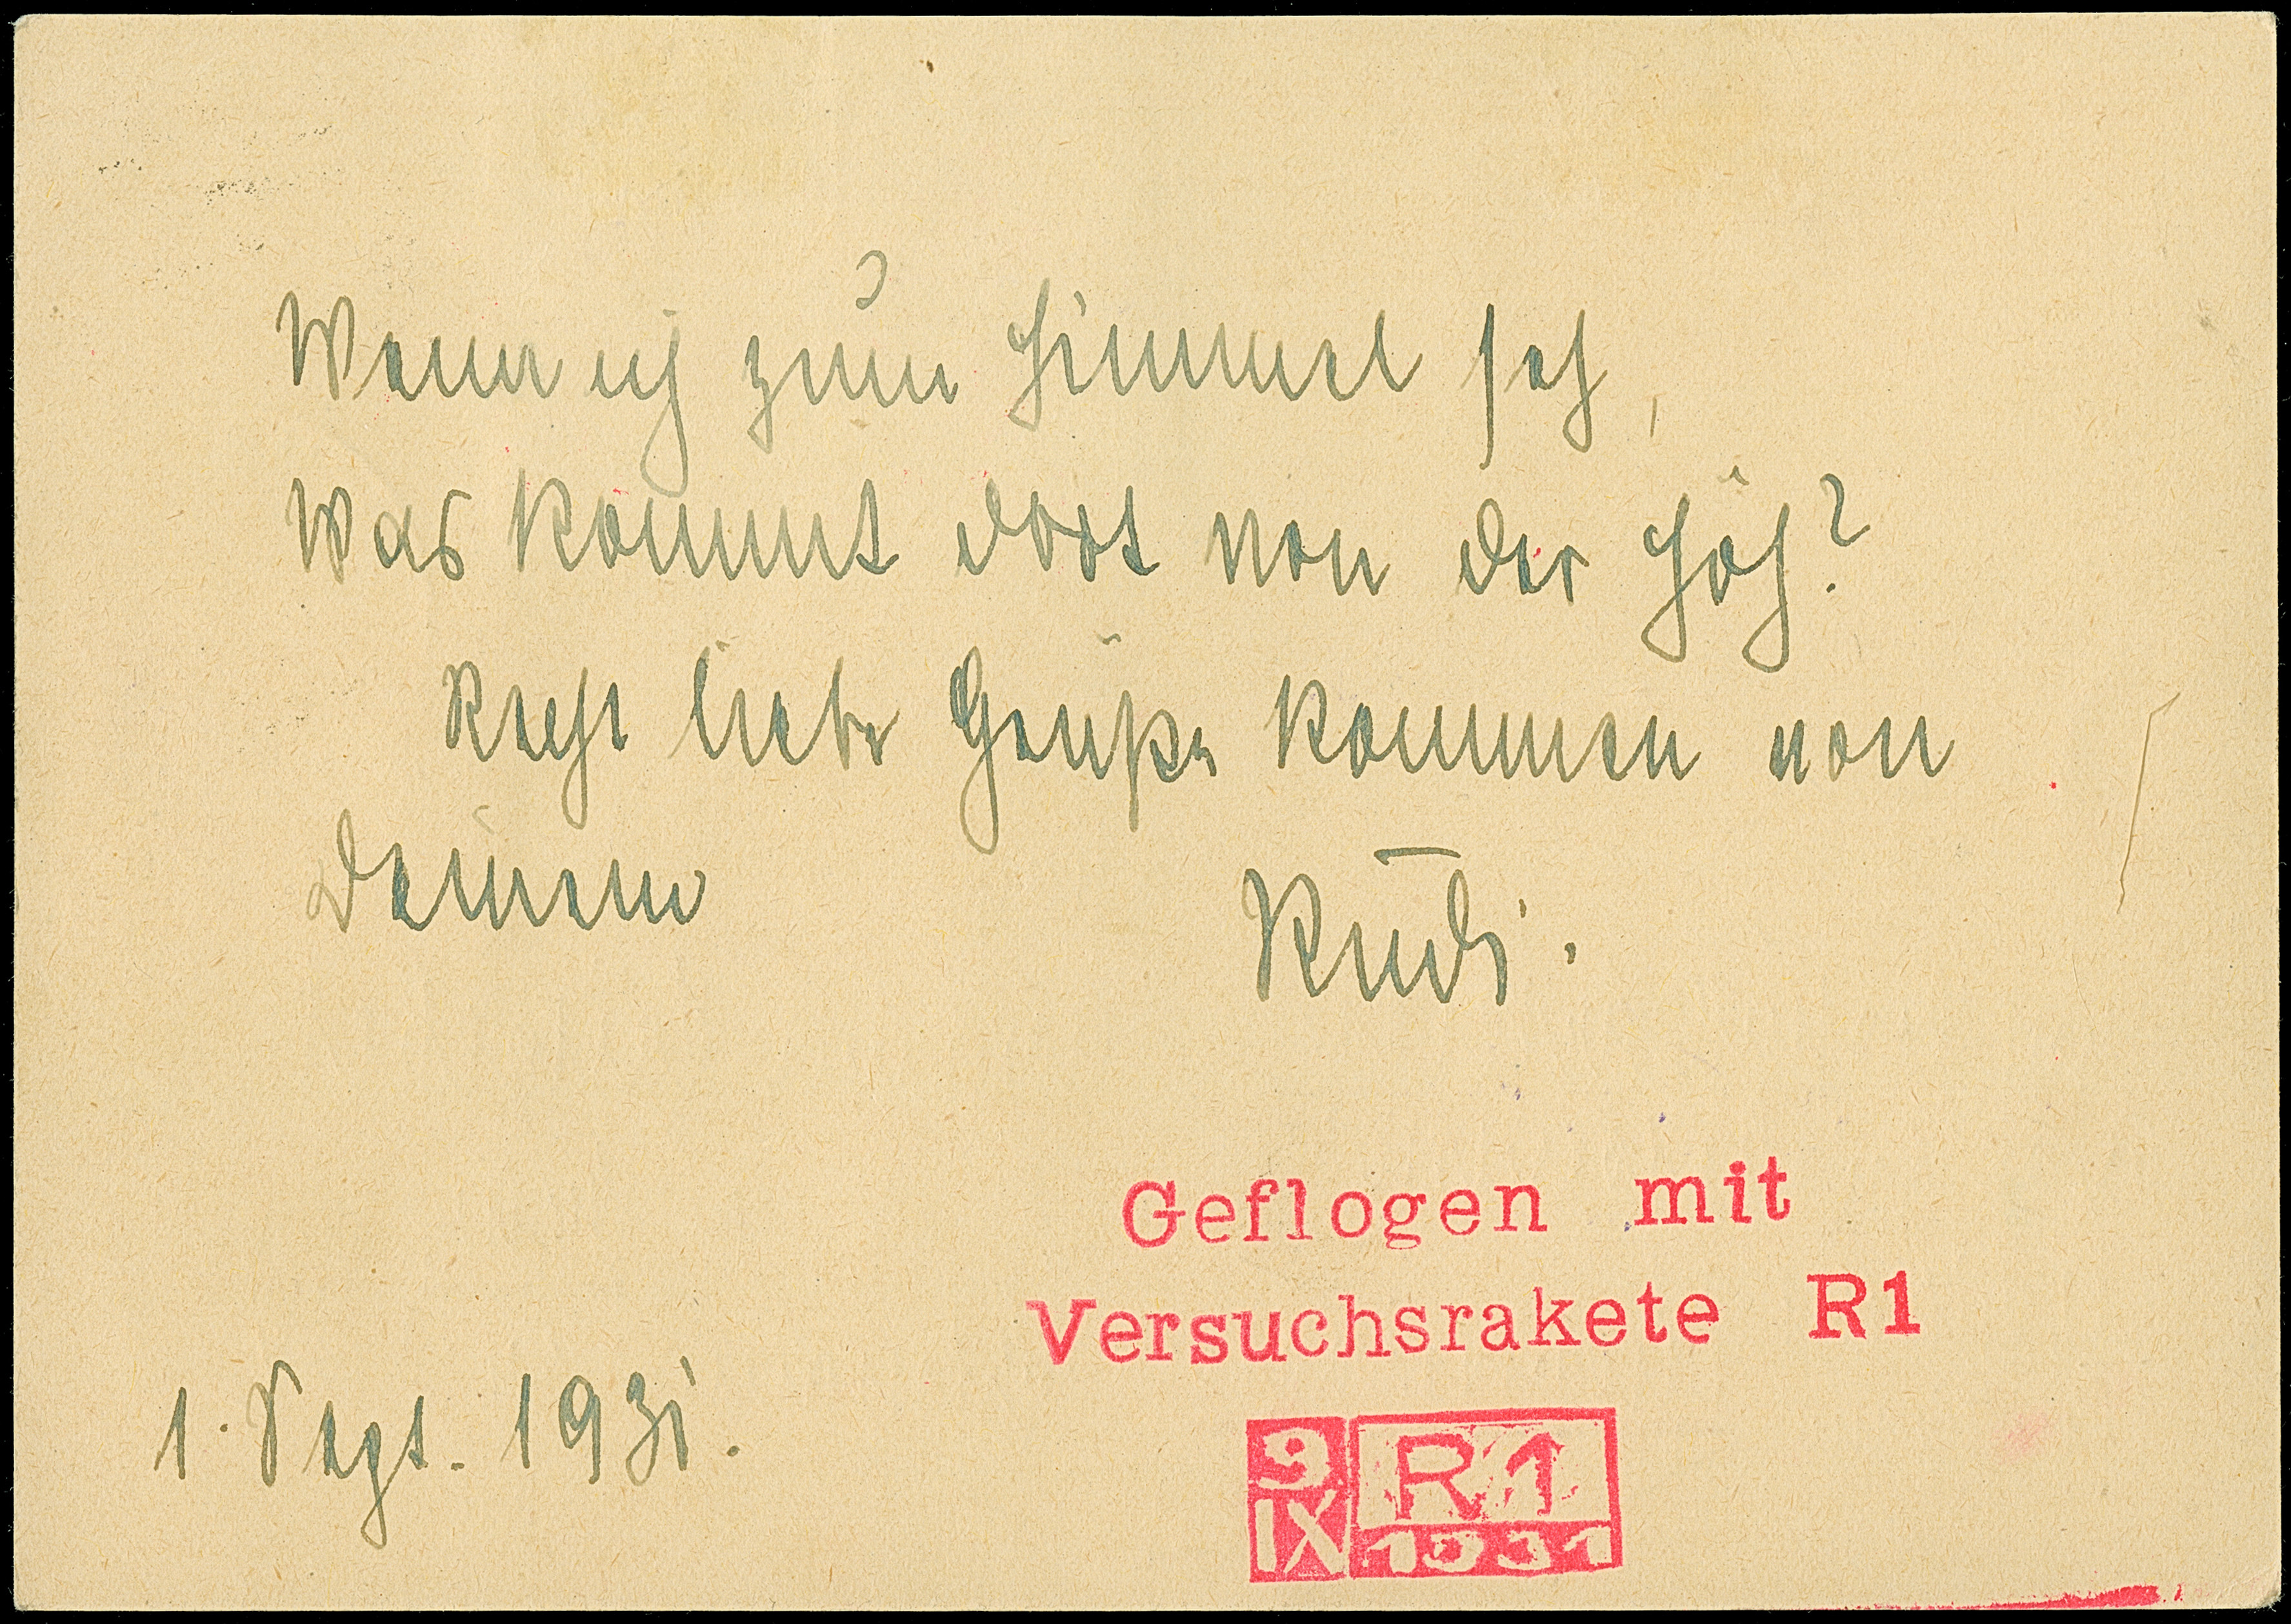 Wenn ich zum Himmel seh,
Was kommt dort von der Höh?
Recht liebe Grüße kommen von
Deinem Rudi.
Geflogen mit
Versuchsrakete R1
1. Sept. 1931.
9 IX R1 1931